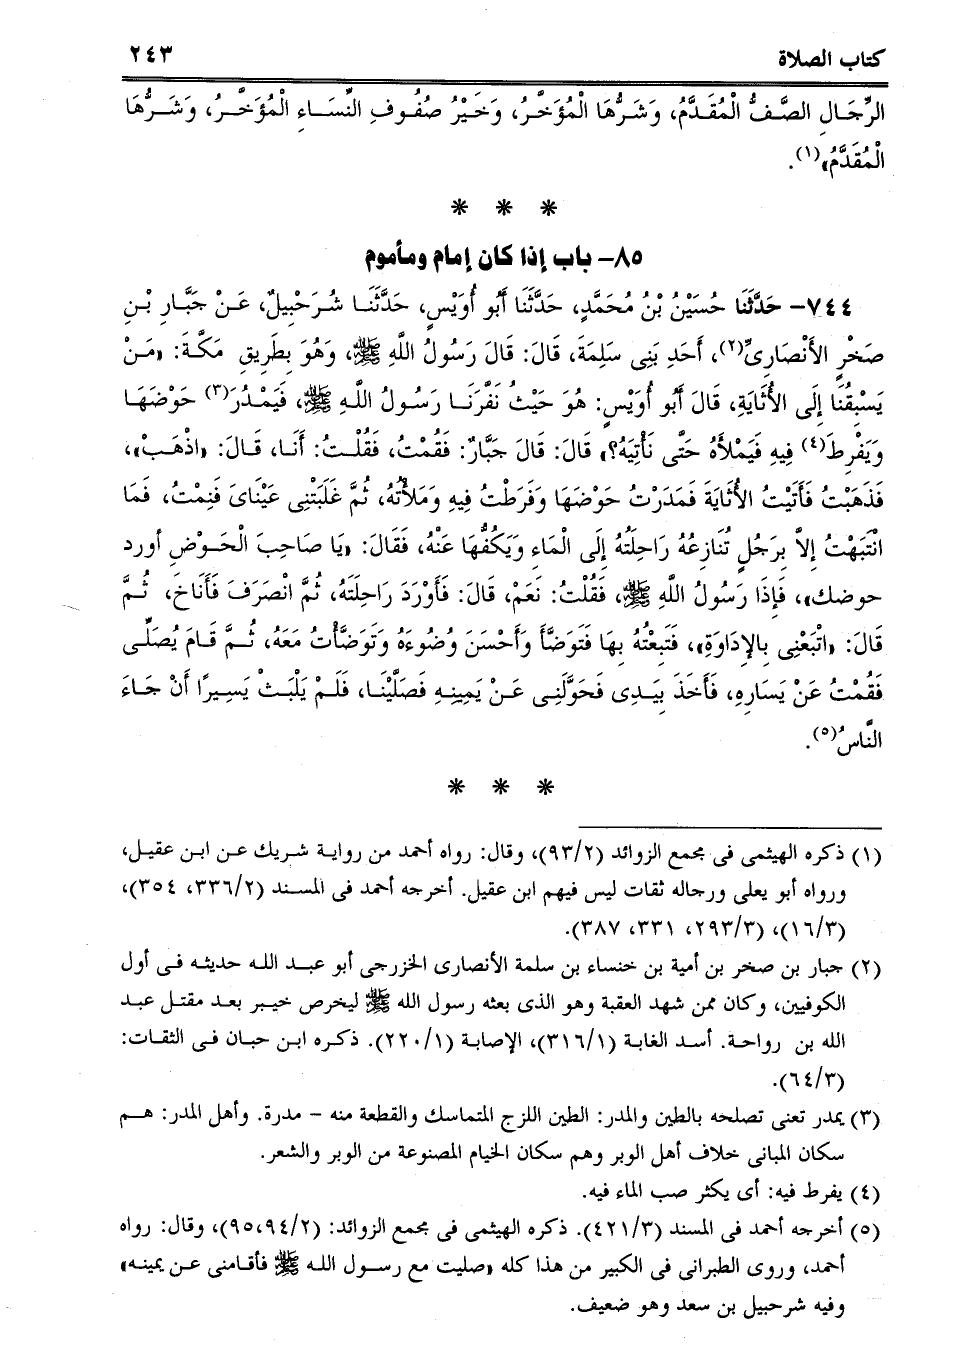 كتاب الصلاة ٢٤٣
الرِّجَالِ الصَّفُّ الْمُقَدَّمُ، وَشَرُّهَا الْمُؤَخَّرُ، وَخَيْرُ صُفُوفِ النِّسَاءِ الْمُؤَخَّرُ، وَشَرُّهَا
الْمُقَدَّمُ»(١).
* * *
٨٥– باب إذا كان إمام ومأموم
٧٤٤– حَدَّثَنَا حُسَيْنُ بْنُ مُحَمَّدٍ، حَدَّثَنَا أَبُو أُوَيْسٍ، حَدَّثَنَا شُرَحْبِيلٌ، عَنْ جَبَّارِ بْنِ
صَخْرٍ الأَنْصَارِىِّ(٢)، أَحَدِ بَنِى سَلِمَةَ، قَالَ: قَالَ رَسُولُ اللَّهِ ﷺ، وَهُوَ بِطَرِيقِ مَكَّةَ: «مَنْ
يَسْبِقُنَا إِلَى الأُثَايَةِ، قَالَ أَبُو أُوَيْسٍ: هُوَ حَيْثُ نَفَّرَنَا رَسُولُ اللَّهِ ﷺ، فَيَمْدُرَ(٣) حَوْضَهَا
وَيَفْرِطَ(٤) فِيهِ فَيَمْلأَهُ حَتَّى نَأْتِيَهُ؟» قَالَ: قَالَ جَبَّارٌ: فَقُمْتُ، فَقُلْتُ: أَنَا، قَالَ: «اذْهَبْ»،
فَذَهَبْتُ فَأَتَيْتُ الأُثَايَةَ فَمَدَرْتُ حَوْضَهَا وَفَرَطْتُ فِيهِ وَمَلأْتُهُ، ثُمَّ غَلَبَتْنِى عَيْنَاىَ فَنِمْتُ، فَمَا
انْتَبَهْتُ إِلاَّ بِرَجُلٍ تُنَازِعُهُ رَاحِلَتُهُ إِلَى الْمَاءِ وَيَكُفُّهَا عَنْهُ، فَقَالَ: «يَا صَاحِبَ الْحَوْضِ أورد
حوضك»، فَإِذَا رَسُولُ اللَّهِ ﷺ، فَقُلْتُ: نَعَمْ، قَالَ: فَأَوْرَدَ رَاحِلَتَهُ، ثُمَّ انْصَرَفَ فَأَنَاخَ، ثُمَّ
قَالَ: «اتْبَعْنِى بِالإِدَاوَةِ»، فَتَبِعْتُهُ بِهَا فَتَوَضَّأَ وَأَحْسَنَ وُضُوءَهُ وَتَوَضَّأْتُ مَعَهُ، ثُمَّ قَامَ يُصَلِّى
فَقُمْتُ عَنْ يَسَارِهِ، فَأَخَذَ بِيَدِى فَحَوَّلَنِى عَنْ يَمِينِهِ فَصَلَّيْنَا، فَلَمْ يَلْبَثْ يَسِيرًا أَنْ جَاءَ
النَّاسُ(٥).
* * *
(١) ذكره الهيثمى فى مجمع الزوائد (٩٣/٢)، وقال: رواه أحمد من رواية شريك عن ابن عقيل،
ورواه أبو يعلى ورجاله ثقات ليس فيهم ابن عقيل. أخرجه أحمد فى المسند (٣٣٦/٢، ٣٥٤)،
(١٦/٣)، (٢٩٣/٣، ٣٣١، ٣٨٧).
(٢) جبار بن صخر بن أمية بن خنساء بن سلمة الأنصارى الخزرجى أبو عبد الله حديثه فى أول
الكوفيين، وكان ممن شهد العقبة وهو الذى بعثه رسول الله ﷺ ليخرص خيبر بعد مقتل عبد
الله بن رواحة. أسد الغابة (٣١٦/١)، الإصابة (٢٢٠/١). ذكره ابن حبان فى الثقات:
(٦٤/٣).
(٣) يمدر تعنى تصلحه بالطين والمدر: الطين اللزج المتماسك والقطعة منه – مدرة. وأهل المدر: هم
سكان المبانى خلاف أهل الوبر وهم سكان الخيام المصنوعة من الوبر والشعر.
(٤) يفرط فيه: أى يكثر صب الماء فيه.
(٥) أخرجه أحمد فى المسند (٤٢١/٣). ذكره الهيثمى فى مجمع الزوائد: (٩٥،٩٤/٢)، وقال: رواه
أحمد، وروى الطبرانى فى الكبير من هذا كله «صليت مع رسول الله ﷺ فأقامنى عن يمينه»
وفيه شرحبيل بن سعد وهو ضعيف.